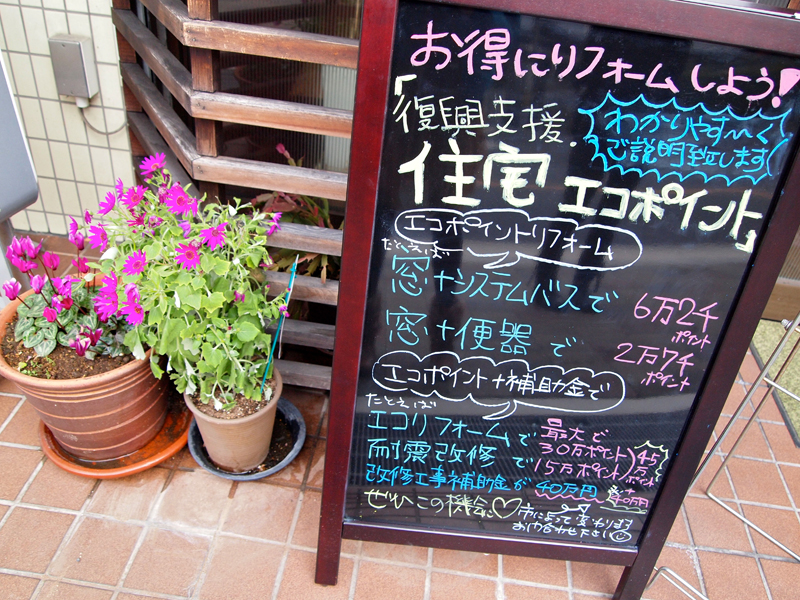 お得にリフォームしよう!
「復興支援.
わかりやす〜く
ご説明致します
住宅エコポイント」
エコポイントリフォーム
たとえば
窓+システムバスで
6万2千
ポイント
窓+便器で
2万7千
ポイント
エコポイント+補助金で
たとえば
エコリフォームで
最大で
30万ポイント
耐震改修で
15万ポイント
45
万
ポイント
改修工事補助金が 40万円
+
40万円
ぜひこの機会に♡
市によって変わります
お問合わせ下さい